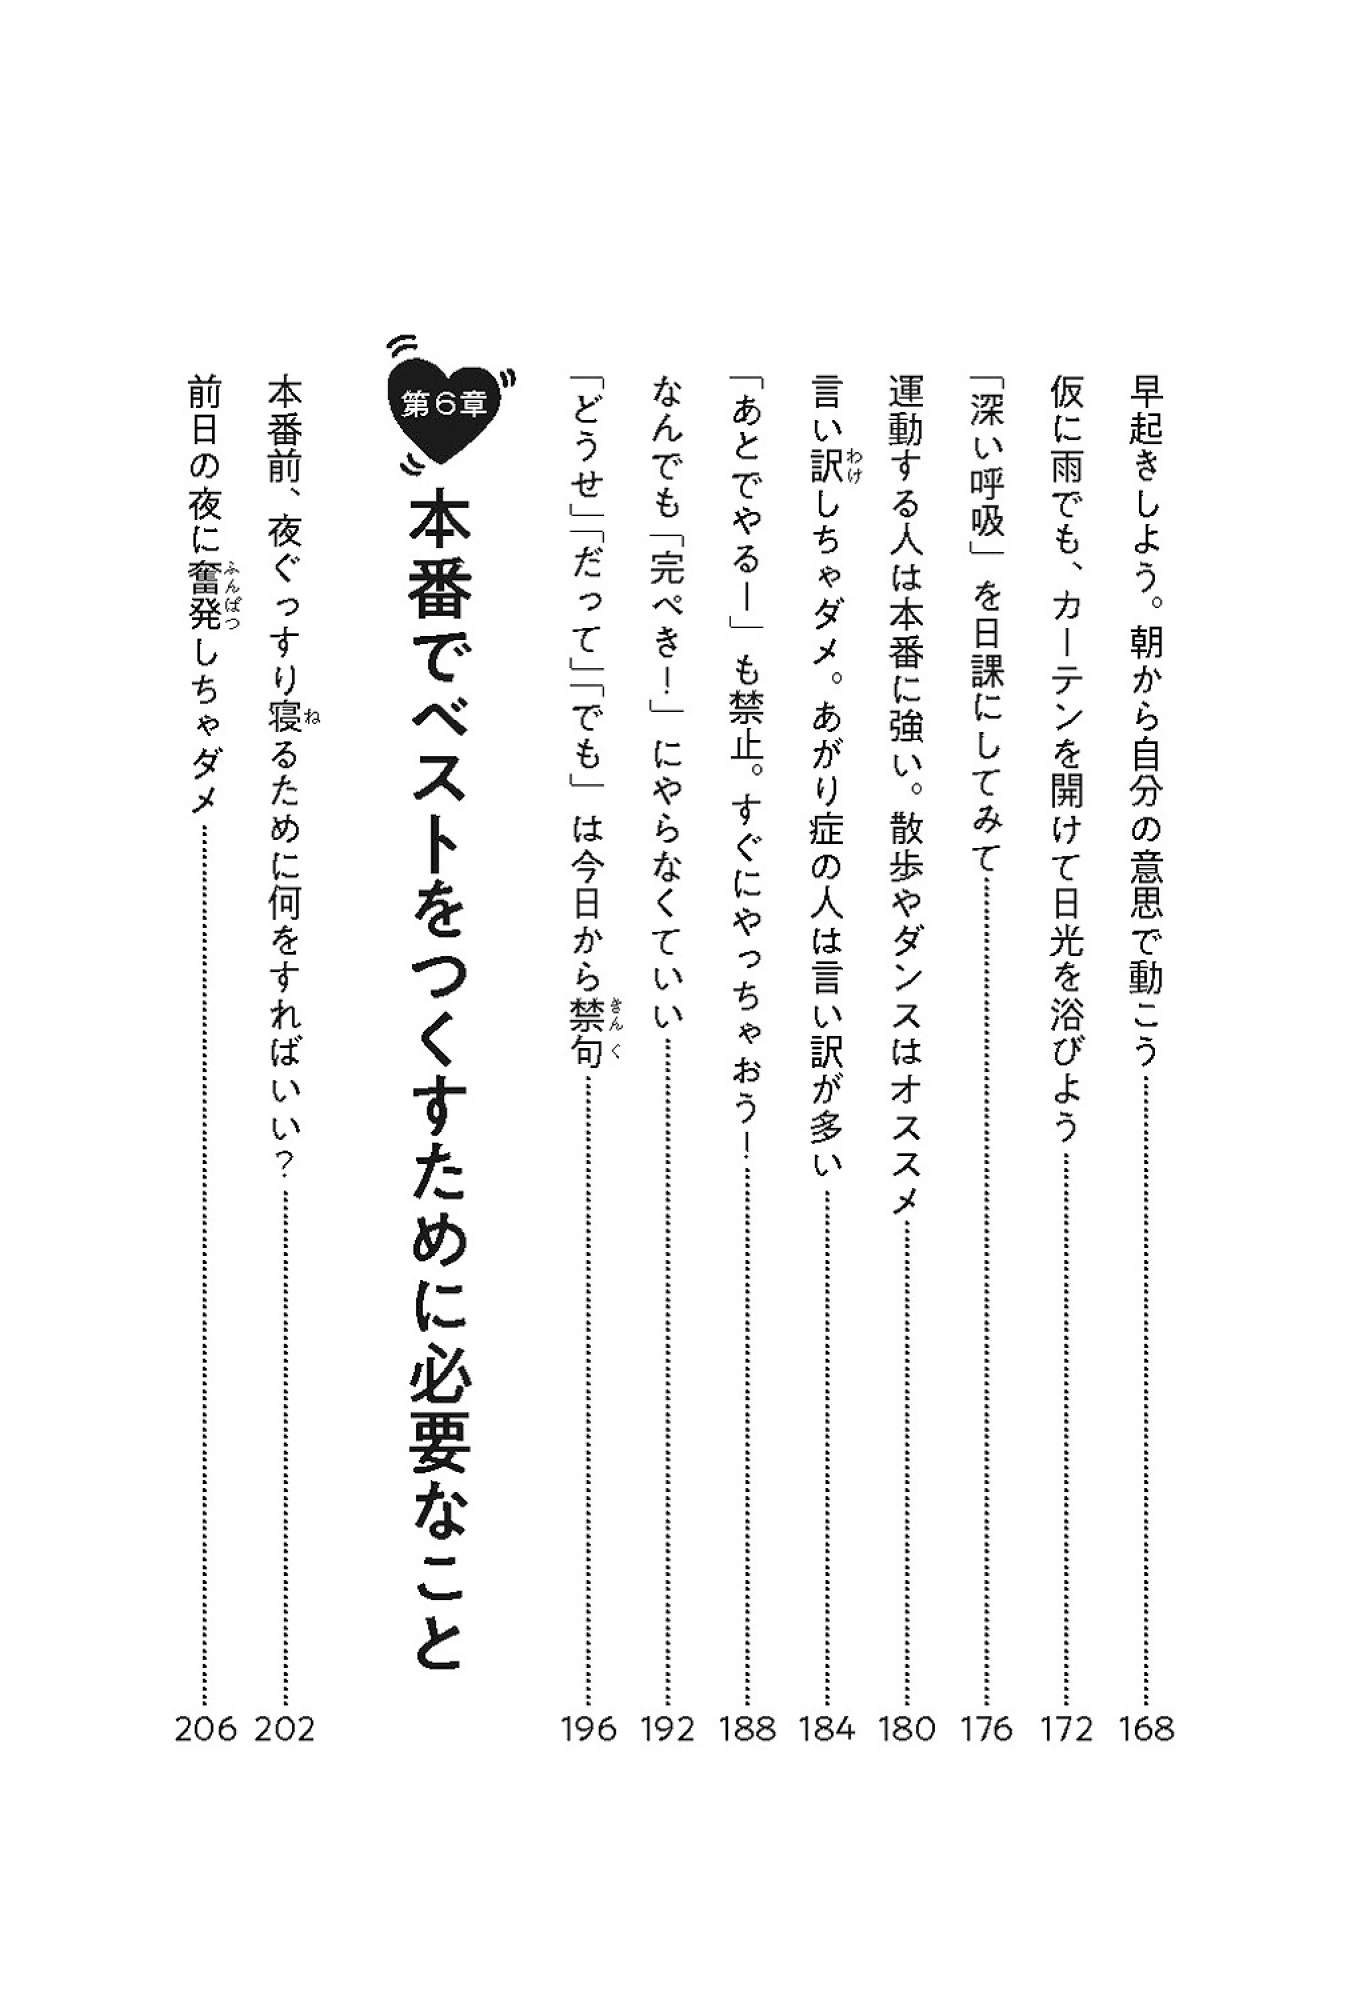 早起きしよう。朝から自分の意思で動こう……168
仮に雨でも、カーテンを開けて日光を浴びよう……172
「深い呼吸」を日課にしてみて……176
運動する人は本番に強い。散歩やダンスはオススメ……180
言い訳しちゃダメ。あがり症の人は言い訳が多い……184
わけ
「あとでやるー」も禁止。すぐにやっちゃおう！……188
なんでも「完ぺき！」にやらなくていい……192
「どうせ」「だって」「でも」は今日から禁句……196
きんく
第6章
本番でベストをつくすために必要なこと
本番前、夜ぐっすり寝るために何をすればいい？……202
ね
前日の夜に奮発しちゃダメ……206
ふんぱつ